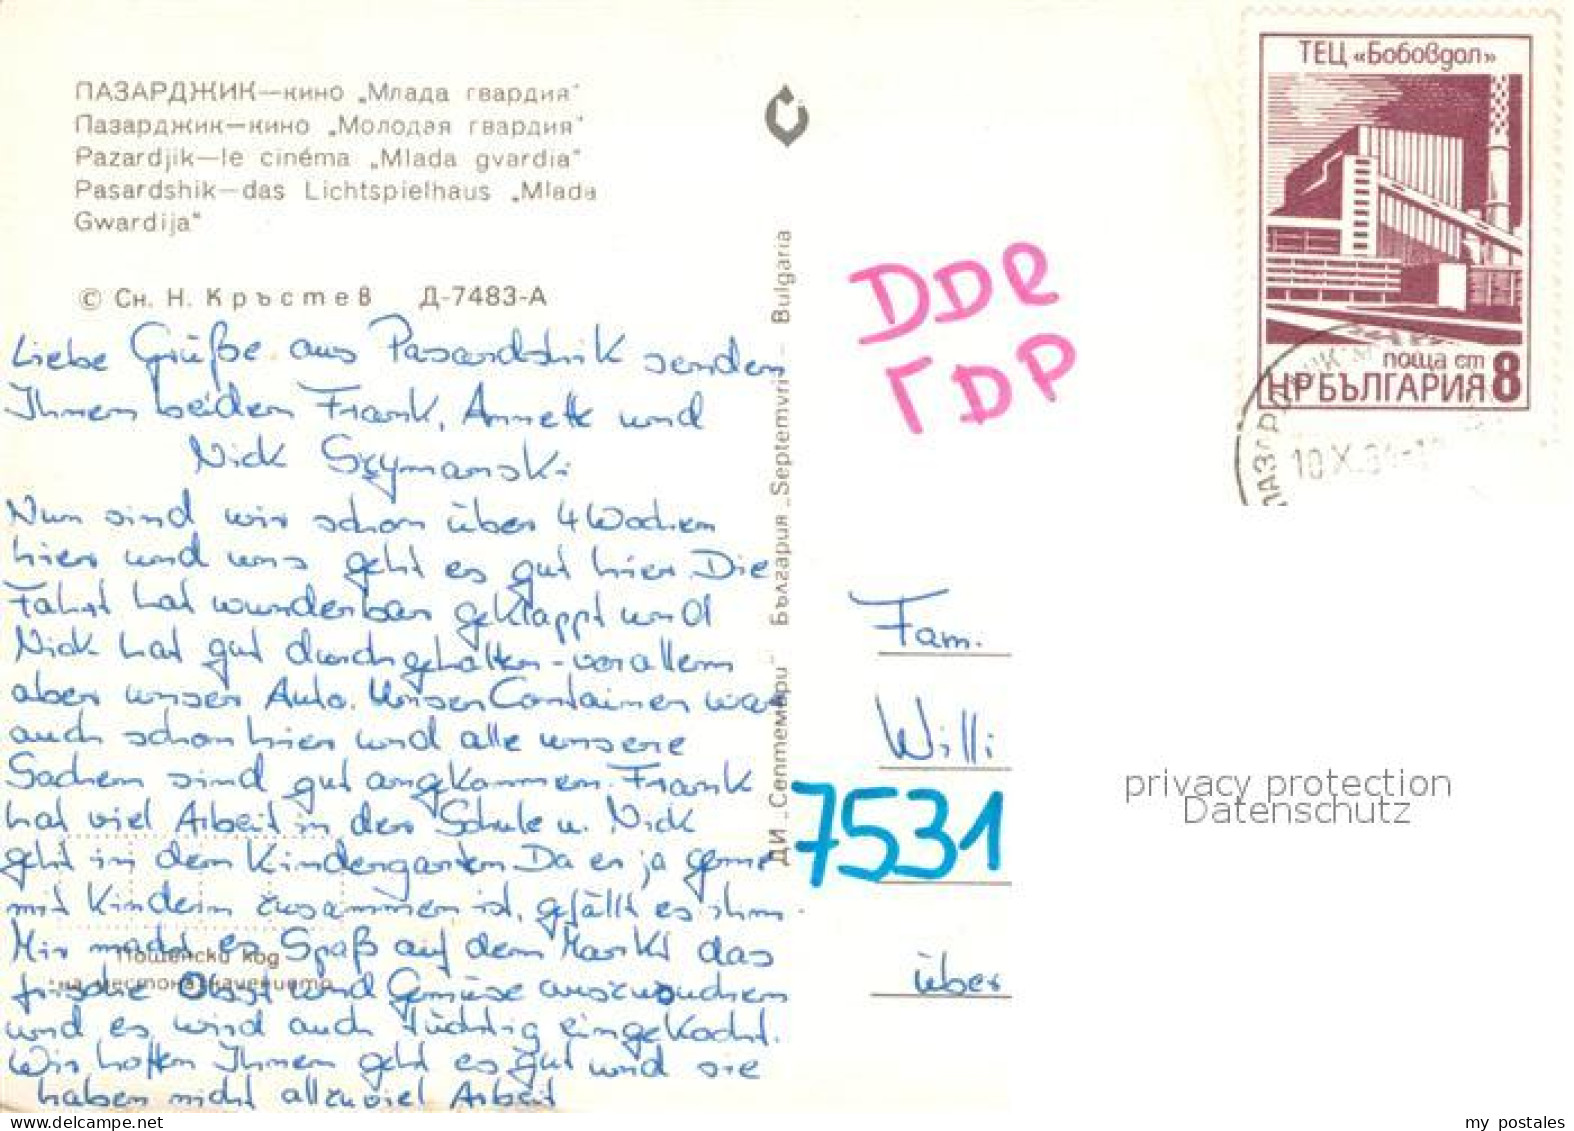 ПАЗАРДЖИК—кино „Млада гвардия“
Пазарджик—кино „Молодая гвардия“
Pazardjik—le cinéma „Mlada gvardia“
Pasardshik—das Lichtspielhaus „Mlada
Gwardija“
© Сн. Н. Кръстев Д-7483-А
Liebe Grüße aus Pasardshik senden
Ihnen beiden Frank, Annett und
Nick Szymanski
Nun sind wir schon über 4 Wochen
hier und uns geht es gut hier. Die
Fahrt hat wunderbar geklappt und
Nick hat gut durchgehalten - vor allem
aber unser Auto. Unser Container war
auch schon hier und alle unsere
Sachen sind gut angekommen. Frank
hat viel Arbeit in der Schule u. Nick
geht in den Kindergarten. Da er ja gerne
mit Kindern zusammen ist, gefällt es ihm.
Mir macht es Spaß auf dem Markt das
frische Obst und Gemüse auszusuchen
und es wird auch tüchtig eingekocht.
Wir hoffen Ihnen geht es gut und sie
haben nicht allzuviel Arbeit
Пощенски код
на местоназначението
ДИ „Септември“ България „Septemvri“ Bulgaria
DDR
ГDР
ТЕЦ «Бобовдол»
поща ст 8
НР БЪЛГАРИЯ
ПАЗАРДЖИК
10 X
Fam.
Willi
7531
über
privacy protection
Datenschutz
my postales